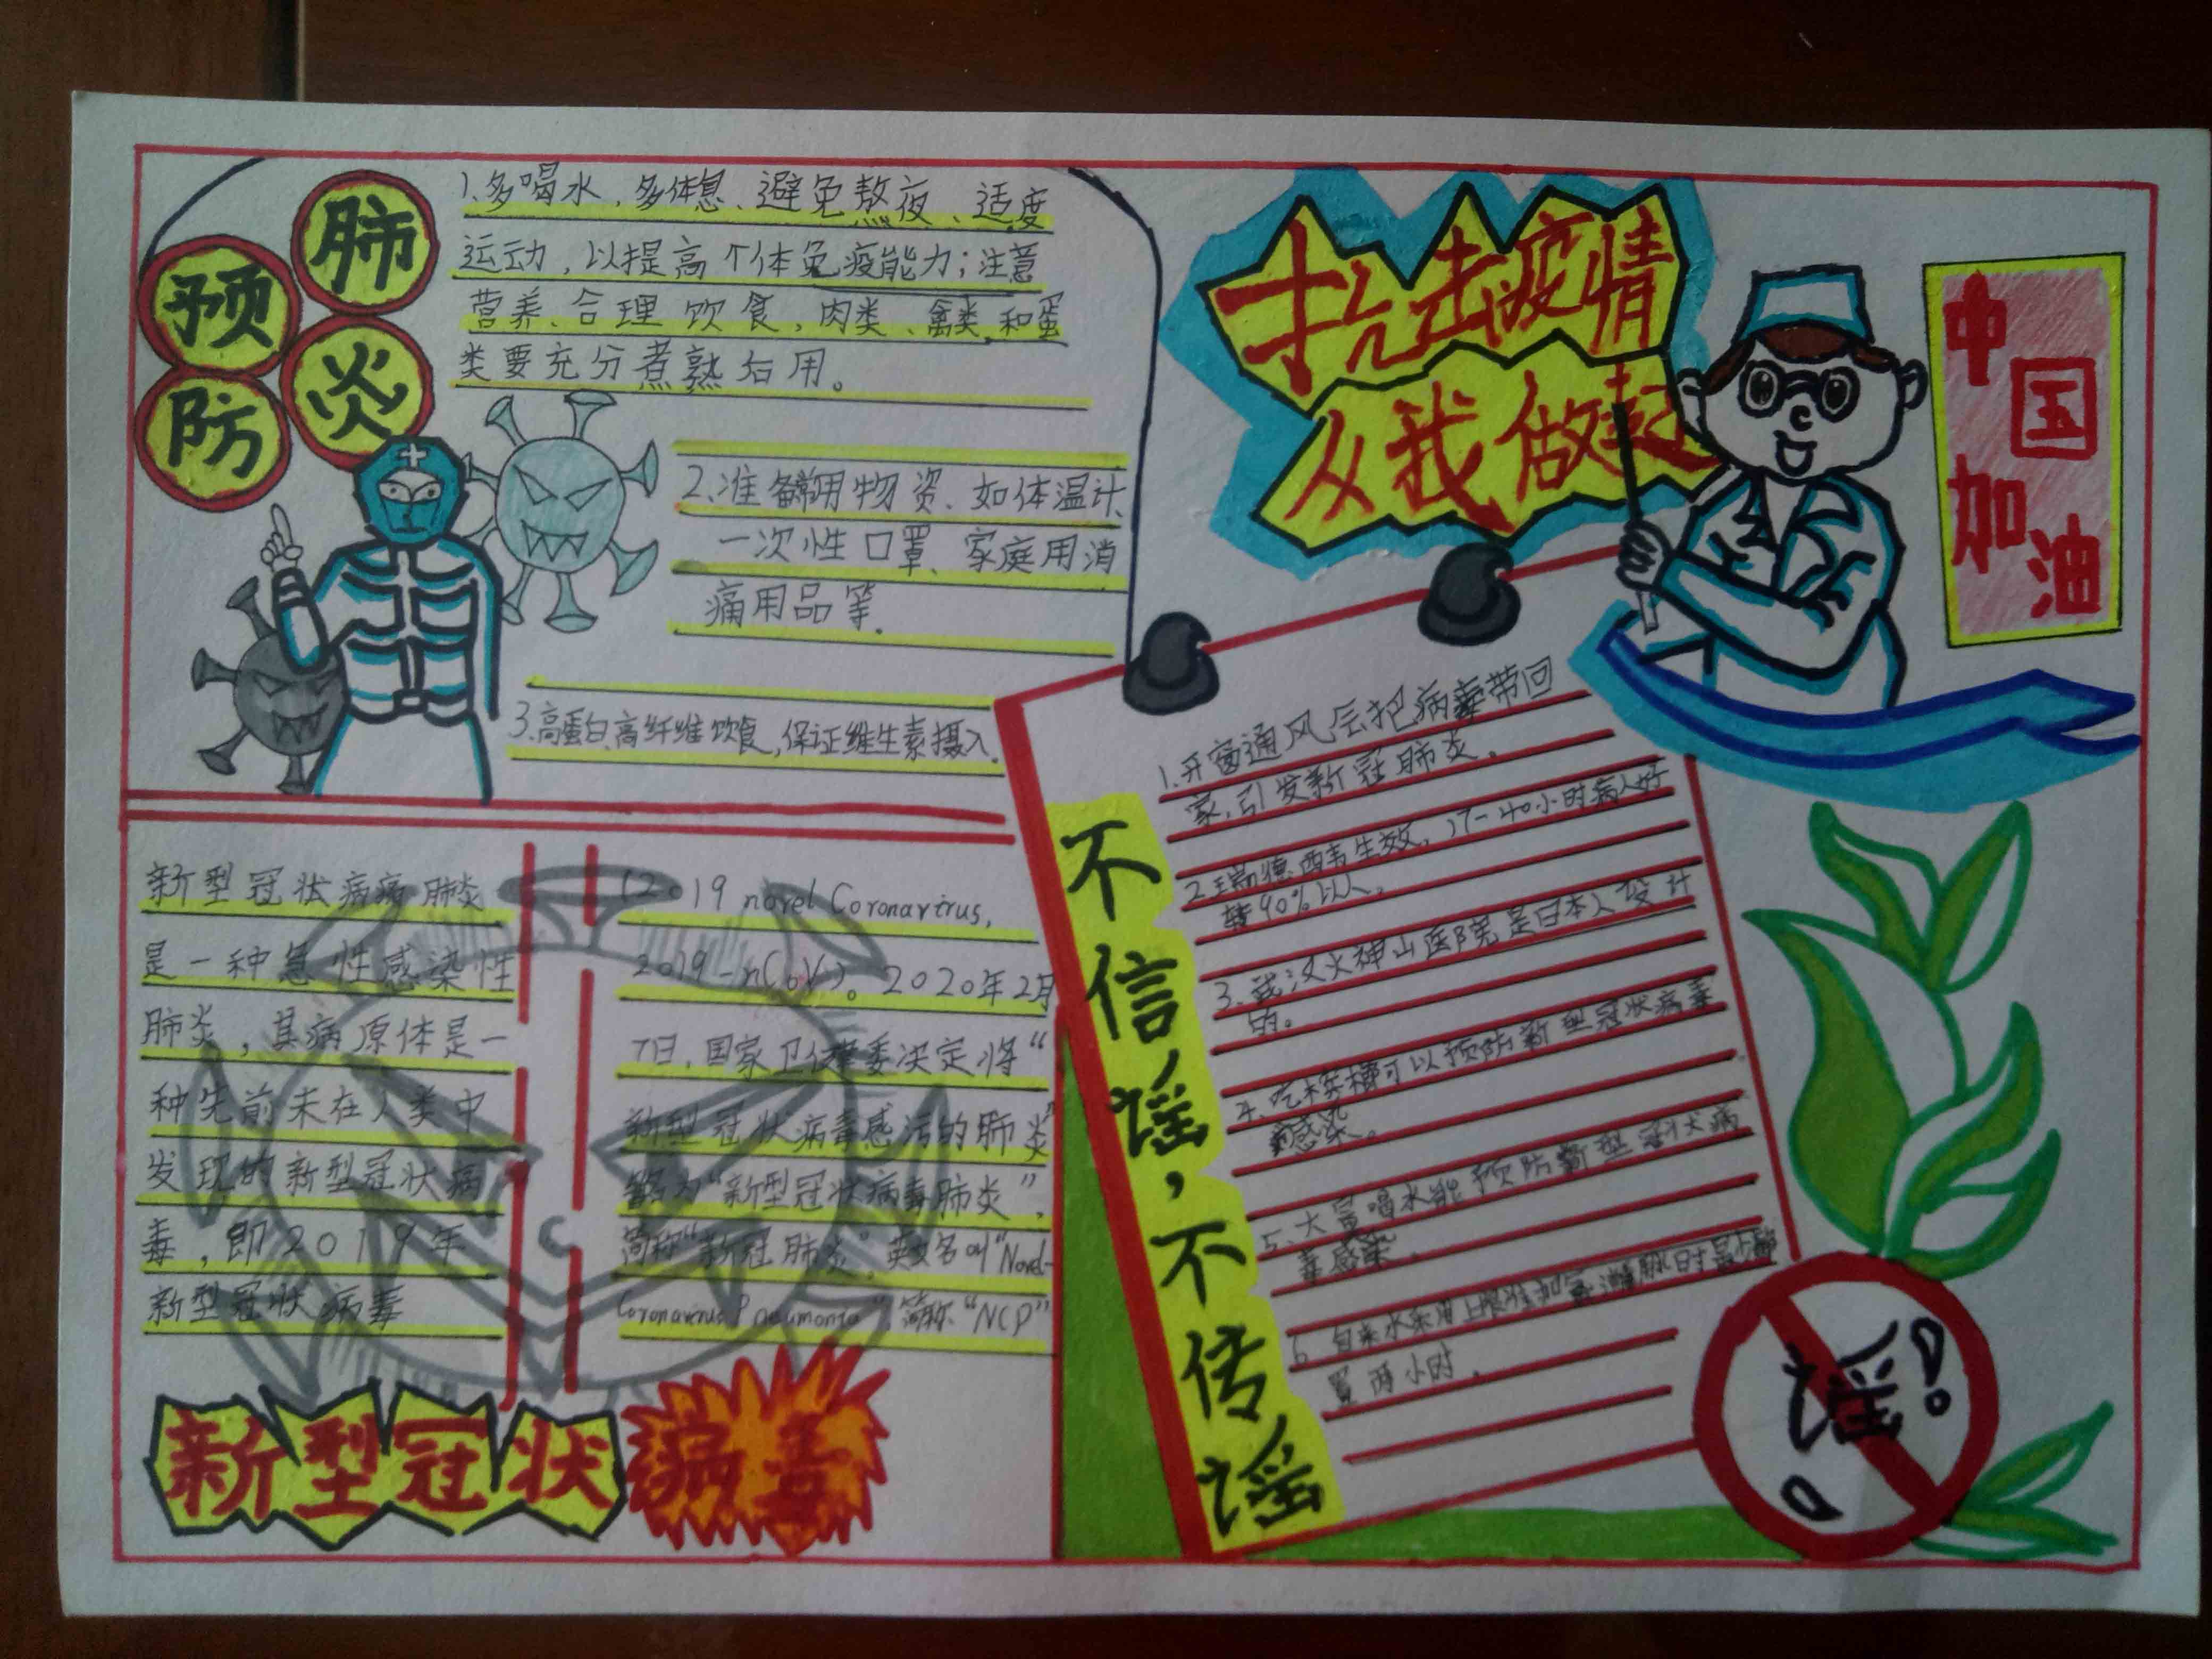 预防
肺炎
1.多喝水,多体息、避免熬夜、适度
运动,以提高个体免疫能力;注意
营养、合理饮食,肉类、禽类、和蛋
类要充分煮熟后用。
2.准备常用物资、如体温计、
一次性口罩、家庭用消
痛用品等.
3.高蛋白、高纤维饮食,保证维生素摄入.
抗击疫情
从我做起
中国加油
新型冠状病痛肺炎
是一种急性感染性
肺炎,其病原体是一
种先前未在人类中
发现的新型冠状病
毒,即2019年
新型冠状病毒
(2019 novel Coronavirus,
2019-nCoV)。2020年2月
7日,国家卫健委决定将“
新型冠状病毒感污的肺炎”
为“新型冠状病毒肺炎”,
简称“新冠肺炎”,英文名叫“Novel-
Coronavirus Pneumonia”,简称“NCP”
新型冠状病毒
不信谣,不传谣
1.开窗通风会把病毒带回
家,引发新冠肺炎。
2.瑞德西韦生效,17-40小时病人好
转90%以人。
3.武汉火神山医院是日本人设计
的。
4.吃槟榔可以预防新型冠状病毒
感染。
5.大量喝水能预防新型冠状病
毒感染.
6.自来水采用上限
置两小时.
谣!